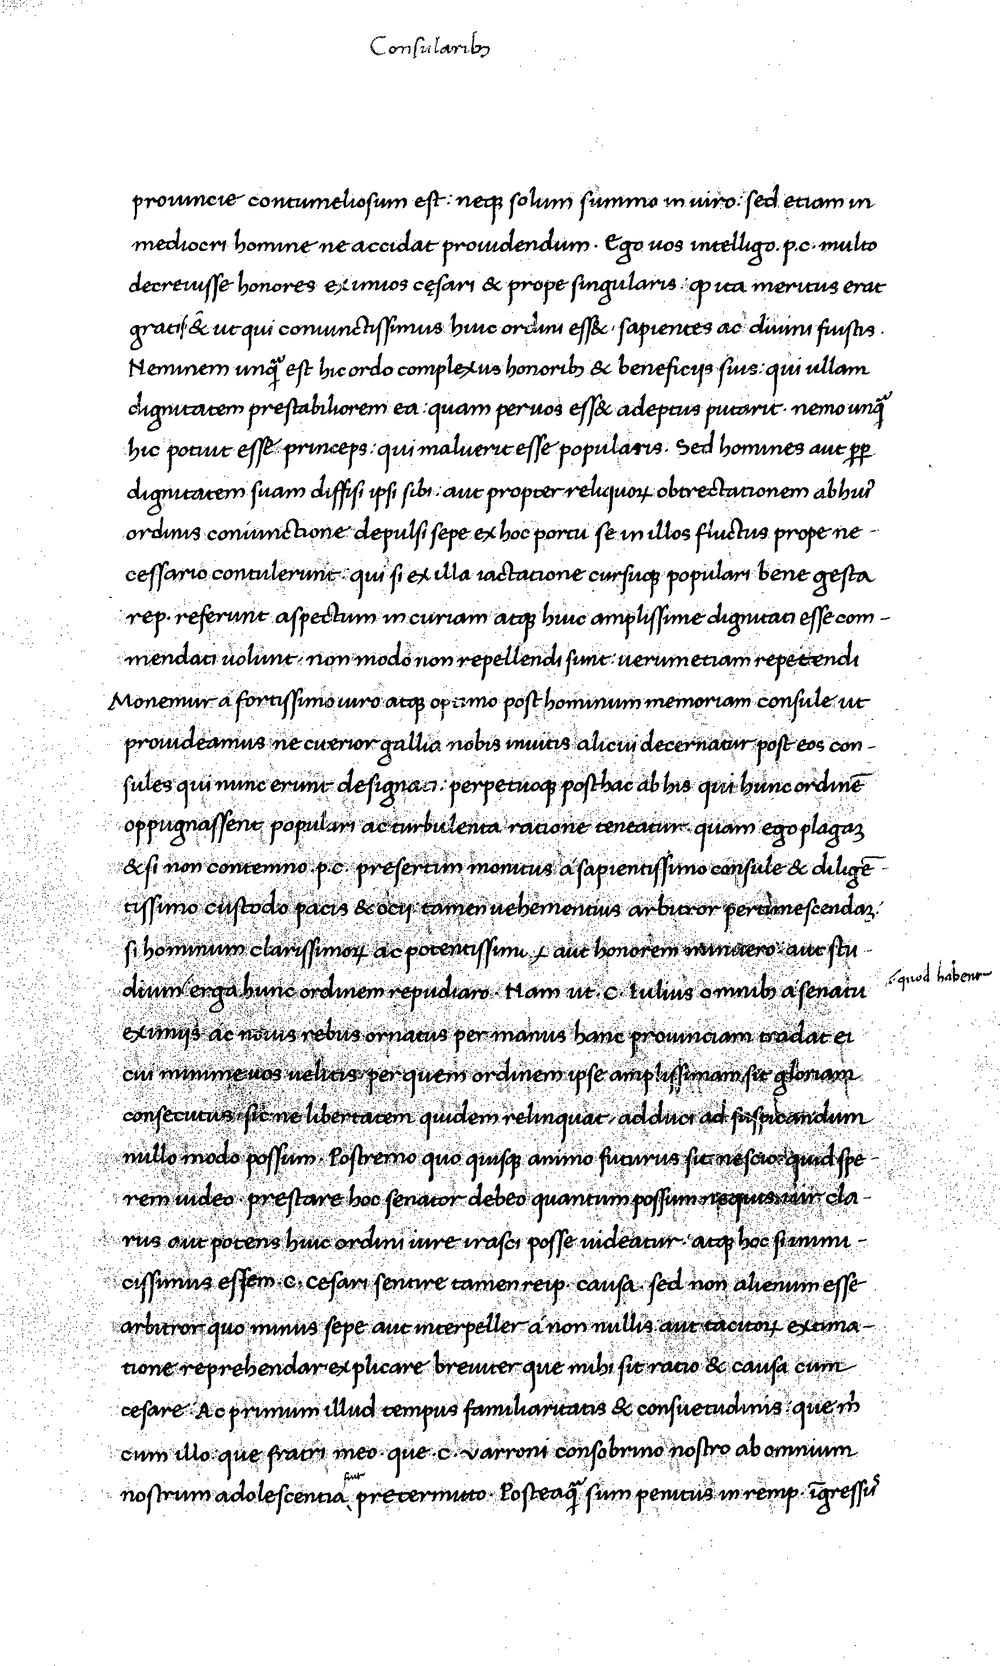 Consularibꝫ
prouincie contumeliosum est: neqꝫ solum summo in uiro: sed etiam in
mediocri homine ne accidat prouidendum. Ego uos intelligo. p.c. multo
decreuisse honores eximios cęsari & prope singularis: ꝙ ita meritus erat
grati & ut qui coniunctissimus huic ordini ess& sapientes ac diuini fuistis.
Neminem unq̃ est hic ordo complexus honoribꝫ & beneficijs suis: qui ullam
dignitatem prestabiliorem ea: quam per uos ess& adeptus putarit. nemo unq̃
hic potuit esse princeps: qui maluerit esse popularis. Sed homines aut ꝓp
dignitatem suam diffisi ipsi sibi: aut propter reliquoꝝ obtrectationem ab huiꝰ
ordinis coniunctione depulsi sepe ex hoc portu se in illos fluctus prope ne-
cessario contulerunt: qui si ex illa iactatione cursuqꝫ populari bene gesta
rep. referunt aspectum in curiam atqꝫ huic amplissime dignitati esse com-
mendati uolunt: non modo non repellendi sunt: uerum etiam repetendi
Monemur a fortissimo uiro atqꝫ optimo post hominum memoriam consule ut
prouideamus ne citerior gallia nobis inuitis alicui decernatur post eos con-
sules qui nunc erunt designati: perpetuoqꝫ posthac ab his qui hunc ordinē
oppugnassent populari ac turbulenta ratione teneatur. quam ego plagaꝫ
& si non contemno .p.c. presertim monitus a sapientissimo consule & diligē-
tissimo custodo pacis & ocij tamen uehementius arbitror pertimescendaꝫ:
si hominum clarissimoꝝ ac potentissimoꝝ aut honorem minuero: aut stu-
dium erga hunc ordinem repudiaro. Nam ut .C. Iulius omnibꝫ a senatu
quod habent
eximijs ac nouis rebus ornatus per manus hanc prouinciam tradat ei
cui minime uos uelitis: per quem ordinem ipse amplissimam sit gloriam
consecutus: sic ne libertatem quidem relinquat: adduci ad suspicandum
nullo modo possum. Postremo quo quisqꝫ animo futurus sit nescio: quid spe-
rem uideo: prestare hoc senator debeo quantum possum nequis uir cla-
rus aut potens huic ordini iure irasci posse uideatur: atqꝫ hoc si inimi-
cissimus essem .C. cesari sentire tamen reip. causa. sed non alienum esse
arbitror quo minus sepe aut interpeller a non nullis aut tacitoꝝ extima-
tione reprehendar explicare breuiter que mihi sit ratio & causa cum
cesare. Ac primum illud tempus familiaritatis & consuetudinis: que m̄
cum illo que fratri meo que .C. varroni consobrino nostro ab omnium
nostrum adolescentia fuit pretermitto. Posteaq̃ sum penitus in remp. īgressꝰ